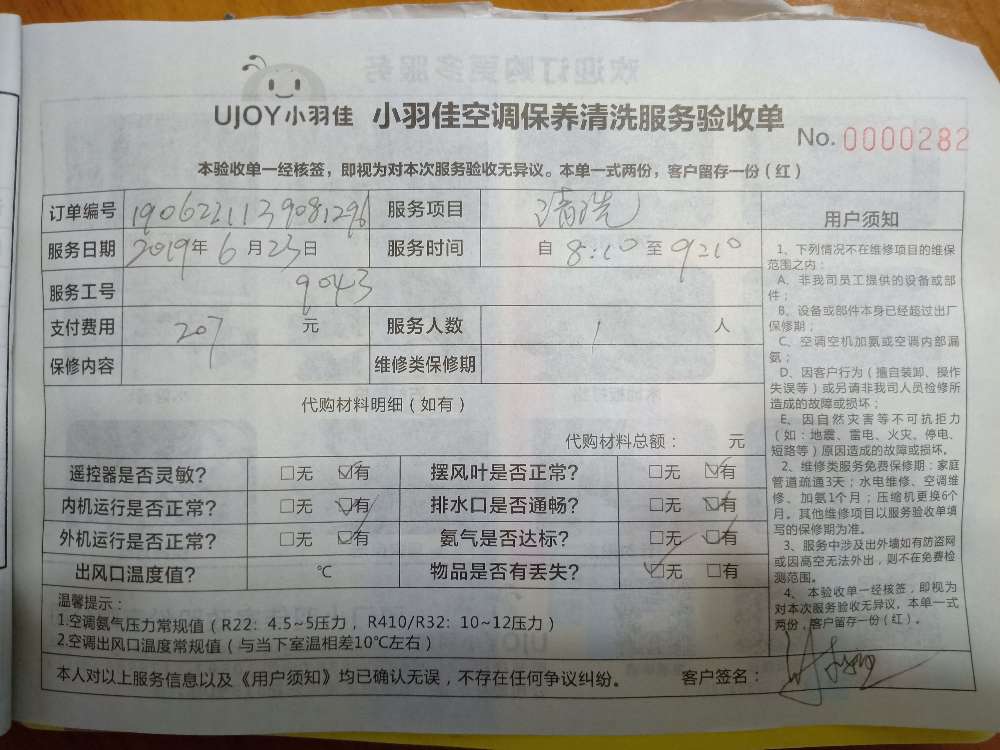 UJOY小羽佳 小羽佳空调保养清洗服务验收单
No. 0000282
本验收单一经核签，即视为对本次服务验收无异议。本单一式两份，客户留存一份（红）
订单编号 1906221139081296 服务项目 清洗
服务日期 2019年 6月23日 服务时间 自 8:10 至 9:10
服务工号 9043
支付费用 207 元 服务人数 1 人
保修内容 维修类保修期
代购材料明细（如有）
代购材料总额： 元
遥控器是否灵敏? □无 ☑有 摆风叶是否正常? □无 ☑有
内机运行是否正常? □无 ☑有 排水口是否通畅? □无 ☑有
外机运行是否正常? □无 ☑有 氨气是否达标? □无 ☑有
出风口温度值? ℃ 物品是否有丢失? ☑无 □有
温馨提示：
1.空调氨气压力常规值（R22：4.5~5压力，R410/R32：10~12压力）
2.空调出风口温度常规值（与当下室温相差10℃左右）
本人对以上服务信息以及《用户须知》均已确认无误，不存在任何争议纠纷。 客户签名：
用户须知
1、下列情况不在维修项目的维保
范围之内：
A、非我司员工提供的设备或部
件；
B、设备或部件本身已经超过出厂
保修期；
C、空调空机加氨或空调内部漏
氨；
D、因客户行为（擅自装卸、操作
失误等）或另请非我司人员检修所
造成的故障或损坏；
E、因自然灾害等不可抗拒力
（如：地震、雷电、火灾、停电、
短路等）原因造成的故障或损坏。
2、维修类服务免费保修期：家庭
管道疏通3天；水电维修、空调维
修、加氨1个月；压缩机更换6个
月。其他维修项目以服务验收单填
写的保修期为准。
3、服务中涉及出外墙如有防盗网
或因高空无法外出，则不在免费检
测范围。
4、本验收单一经核签，即视为
对本次服务验收无异议。本单一式
两份，客户留存一份（红）。